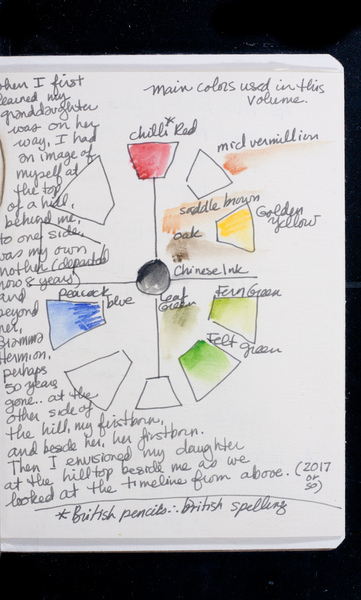 when I first
learned my
granddaughter
was on her
way, I had
an image of
myself at
the top
of a hill,
behind me,
to one side,
was my own
mother (departed
now 8 years)
and
beyond
her,
Gramma
Hermion,
perhaps
50 years
gone.. at the
other side of
the hill, my firstborn,
and beside her, her firstborn.
Then I envisioned my daughter
at the hilltop beside me as we
looked at the timeline from above. (2017
or
so)
*British pencils ∴ british spelling
main colors used in this
volume.
chilli* Red
mid vermillion
saddle brown
Golden
yellow
oak
Chinese Ink
Peacock
blue
Leaf
Green
Fern Green
Felt green